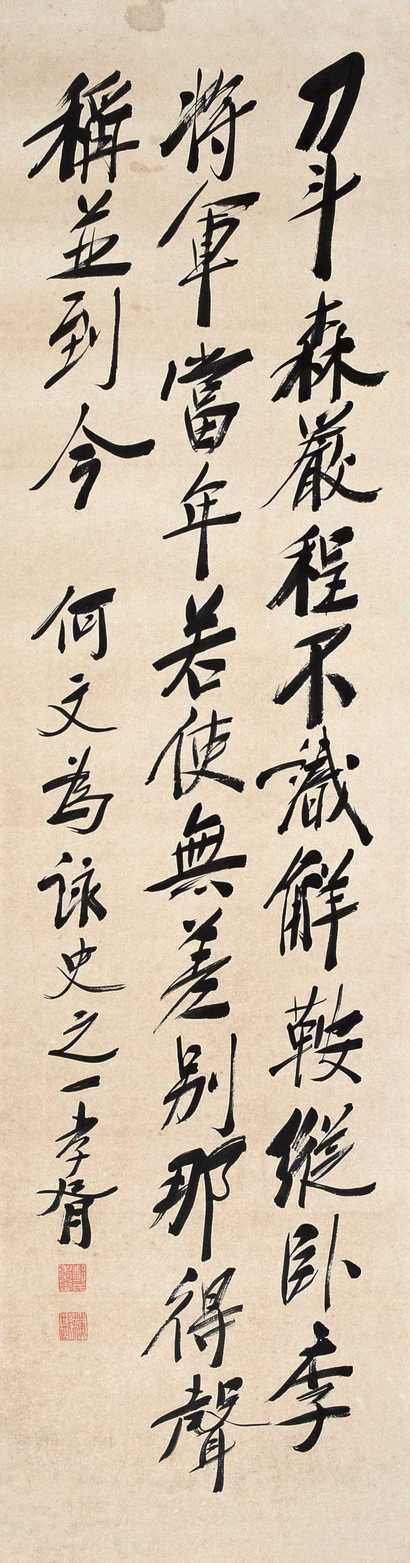 刀斗森嚴程不識解鞍縱臥李
將軍當年若使無差別那得聲
稱並到今
何文為詠史之一孝胥